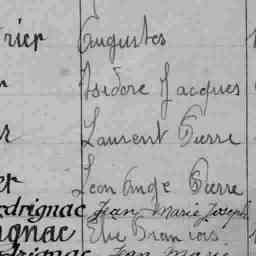 rier Augustes
Isidore Jacques
r Laurent Pierre
er Leon Ange Pierre
drignac Jean Marie Joseph
gnac Elie Francois
drignac Jean Marie